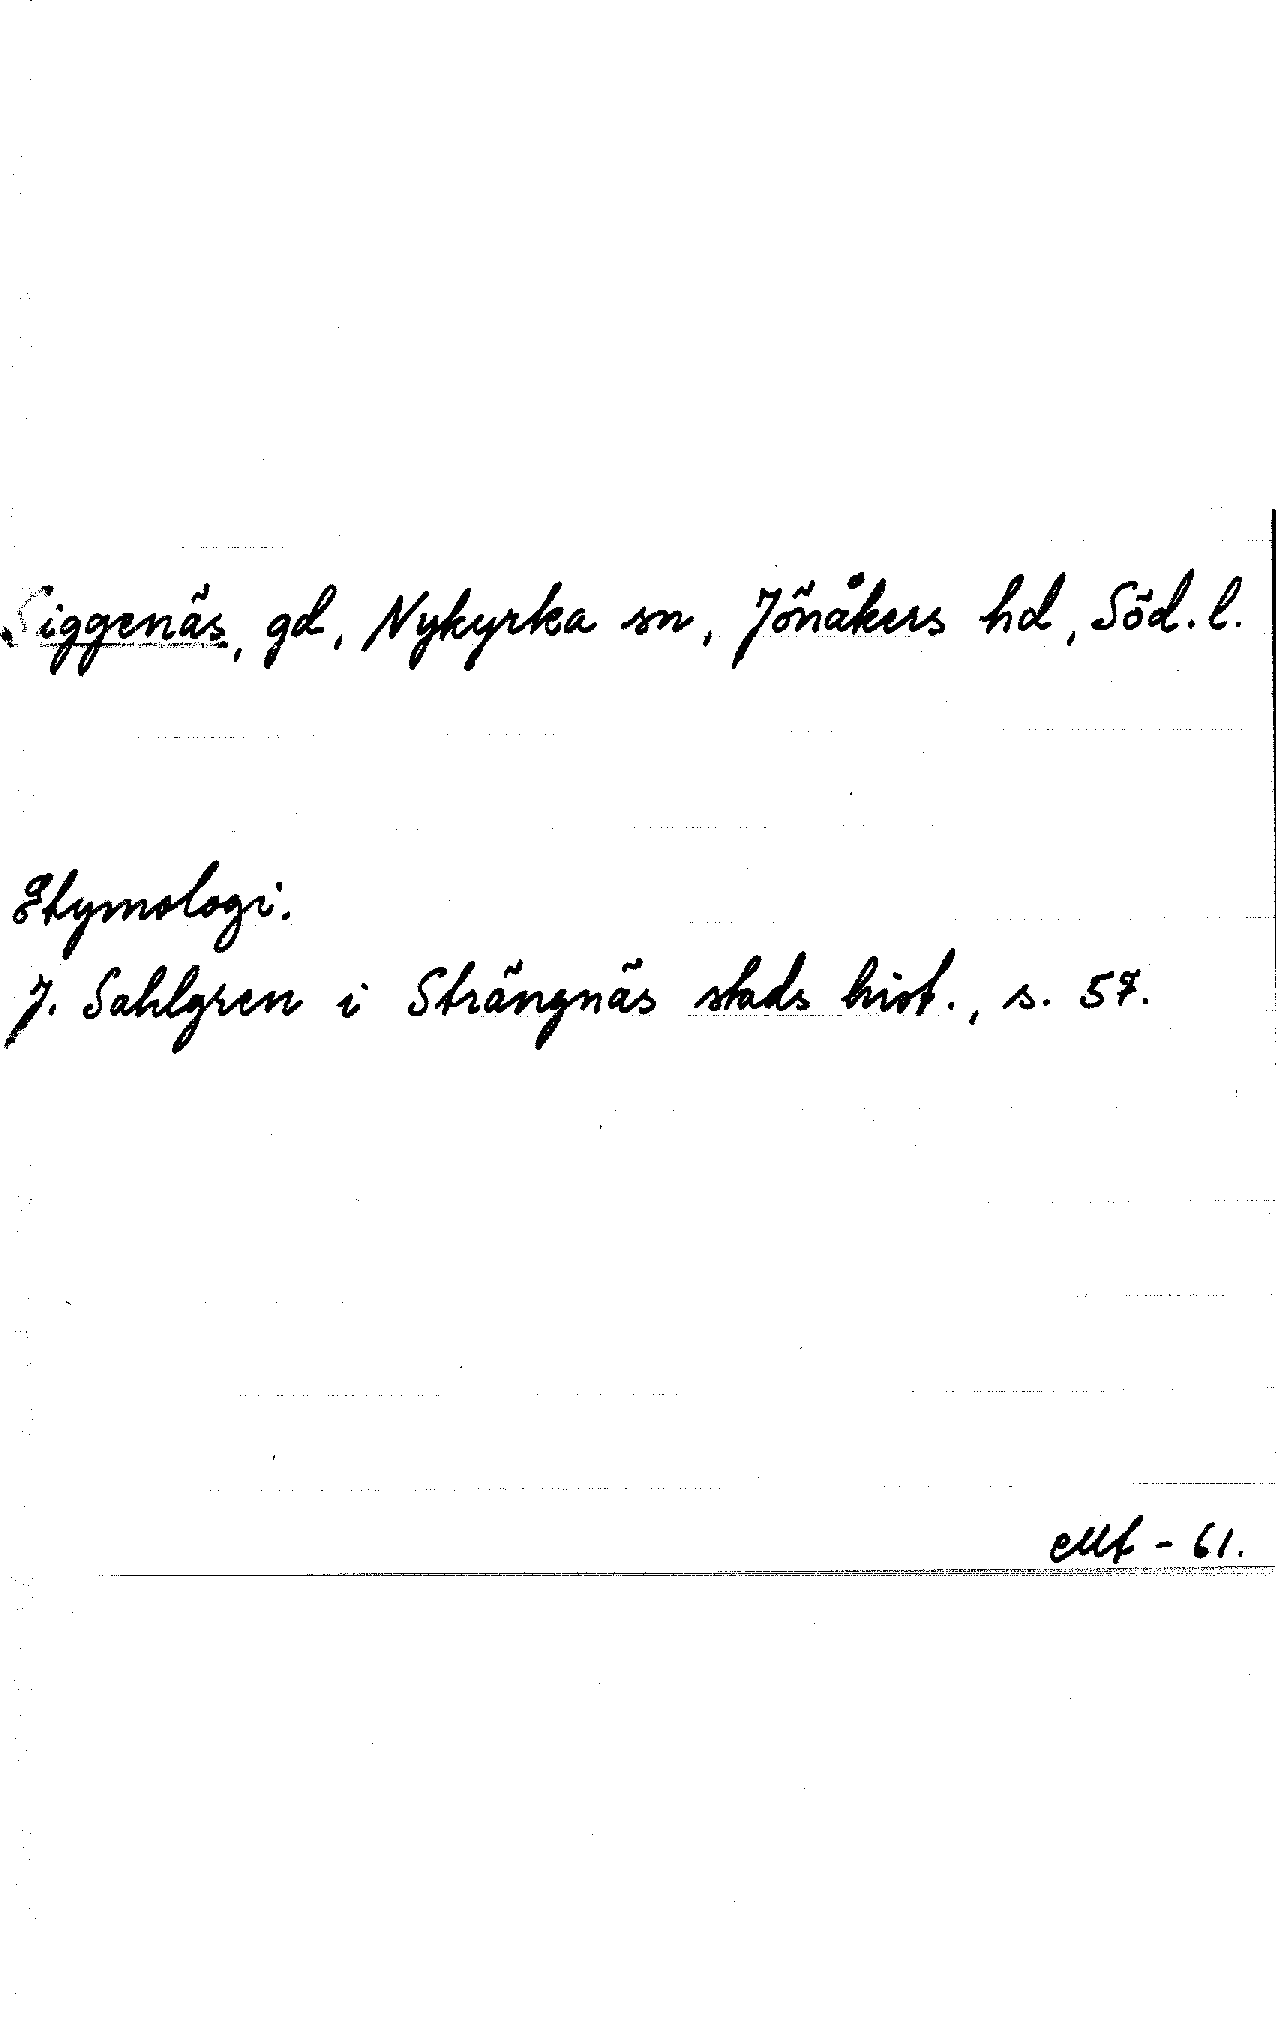 Siggenäs, gd, Nykyrka sn, Jönåkers hd, Söd. l.
Etymologi.
J. Sahlgren i Strängnäs stads hist., s. 57.
Mt - 61.